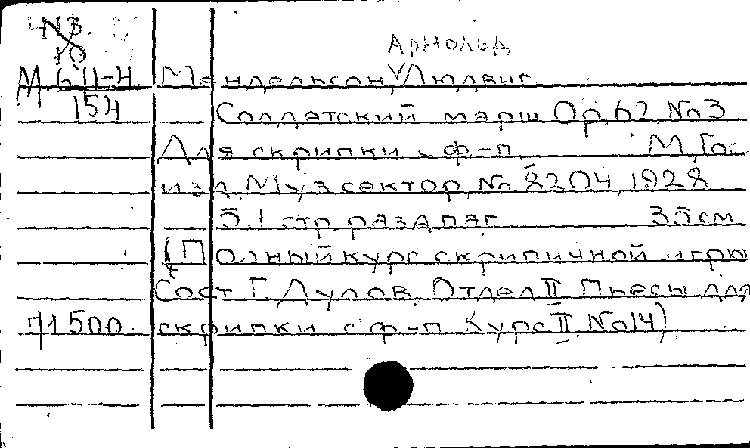 N3.
10
Арнольд
М 6 11-4 Мендельсон, V Людвиг
154 Солдатский марш Op. 62 No 3
Для скрипки с ф-п. М. Гос.
изд. Муз сектор, No 8204, 1928
5.1 стр. раздпаг 35 см
(Полный курс скрипичной игры
Сост Г. Дулов. Отдел II Пьесы для
71500 скрипки с ф-п Курс II No 14)